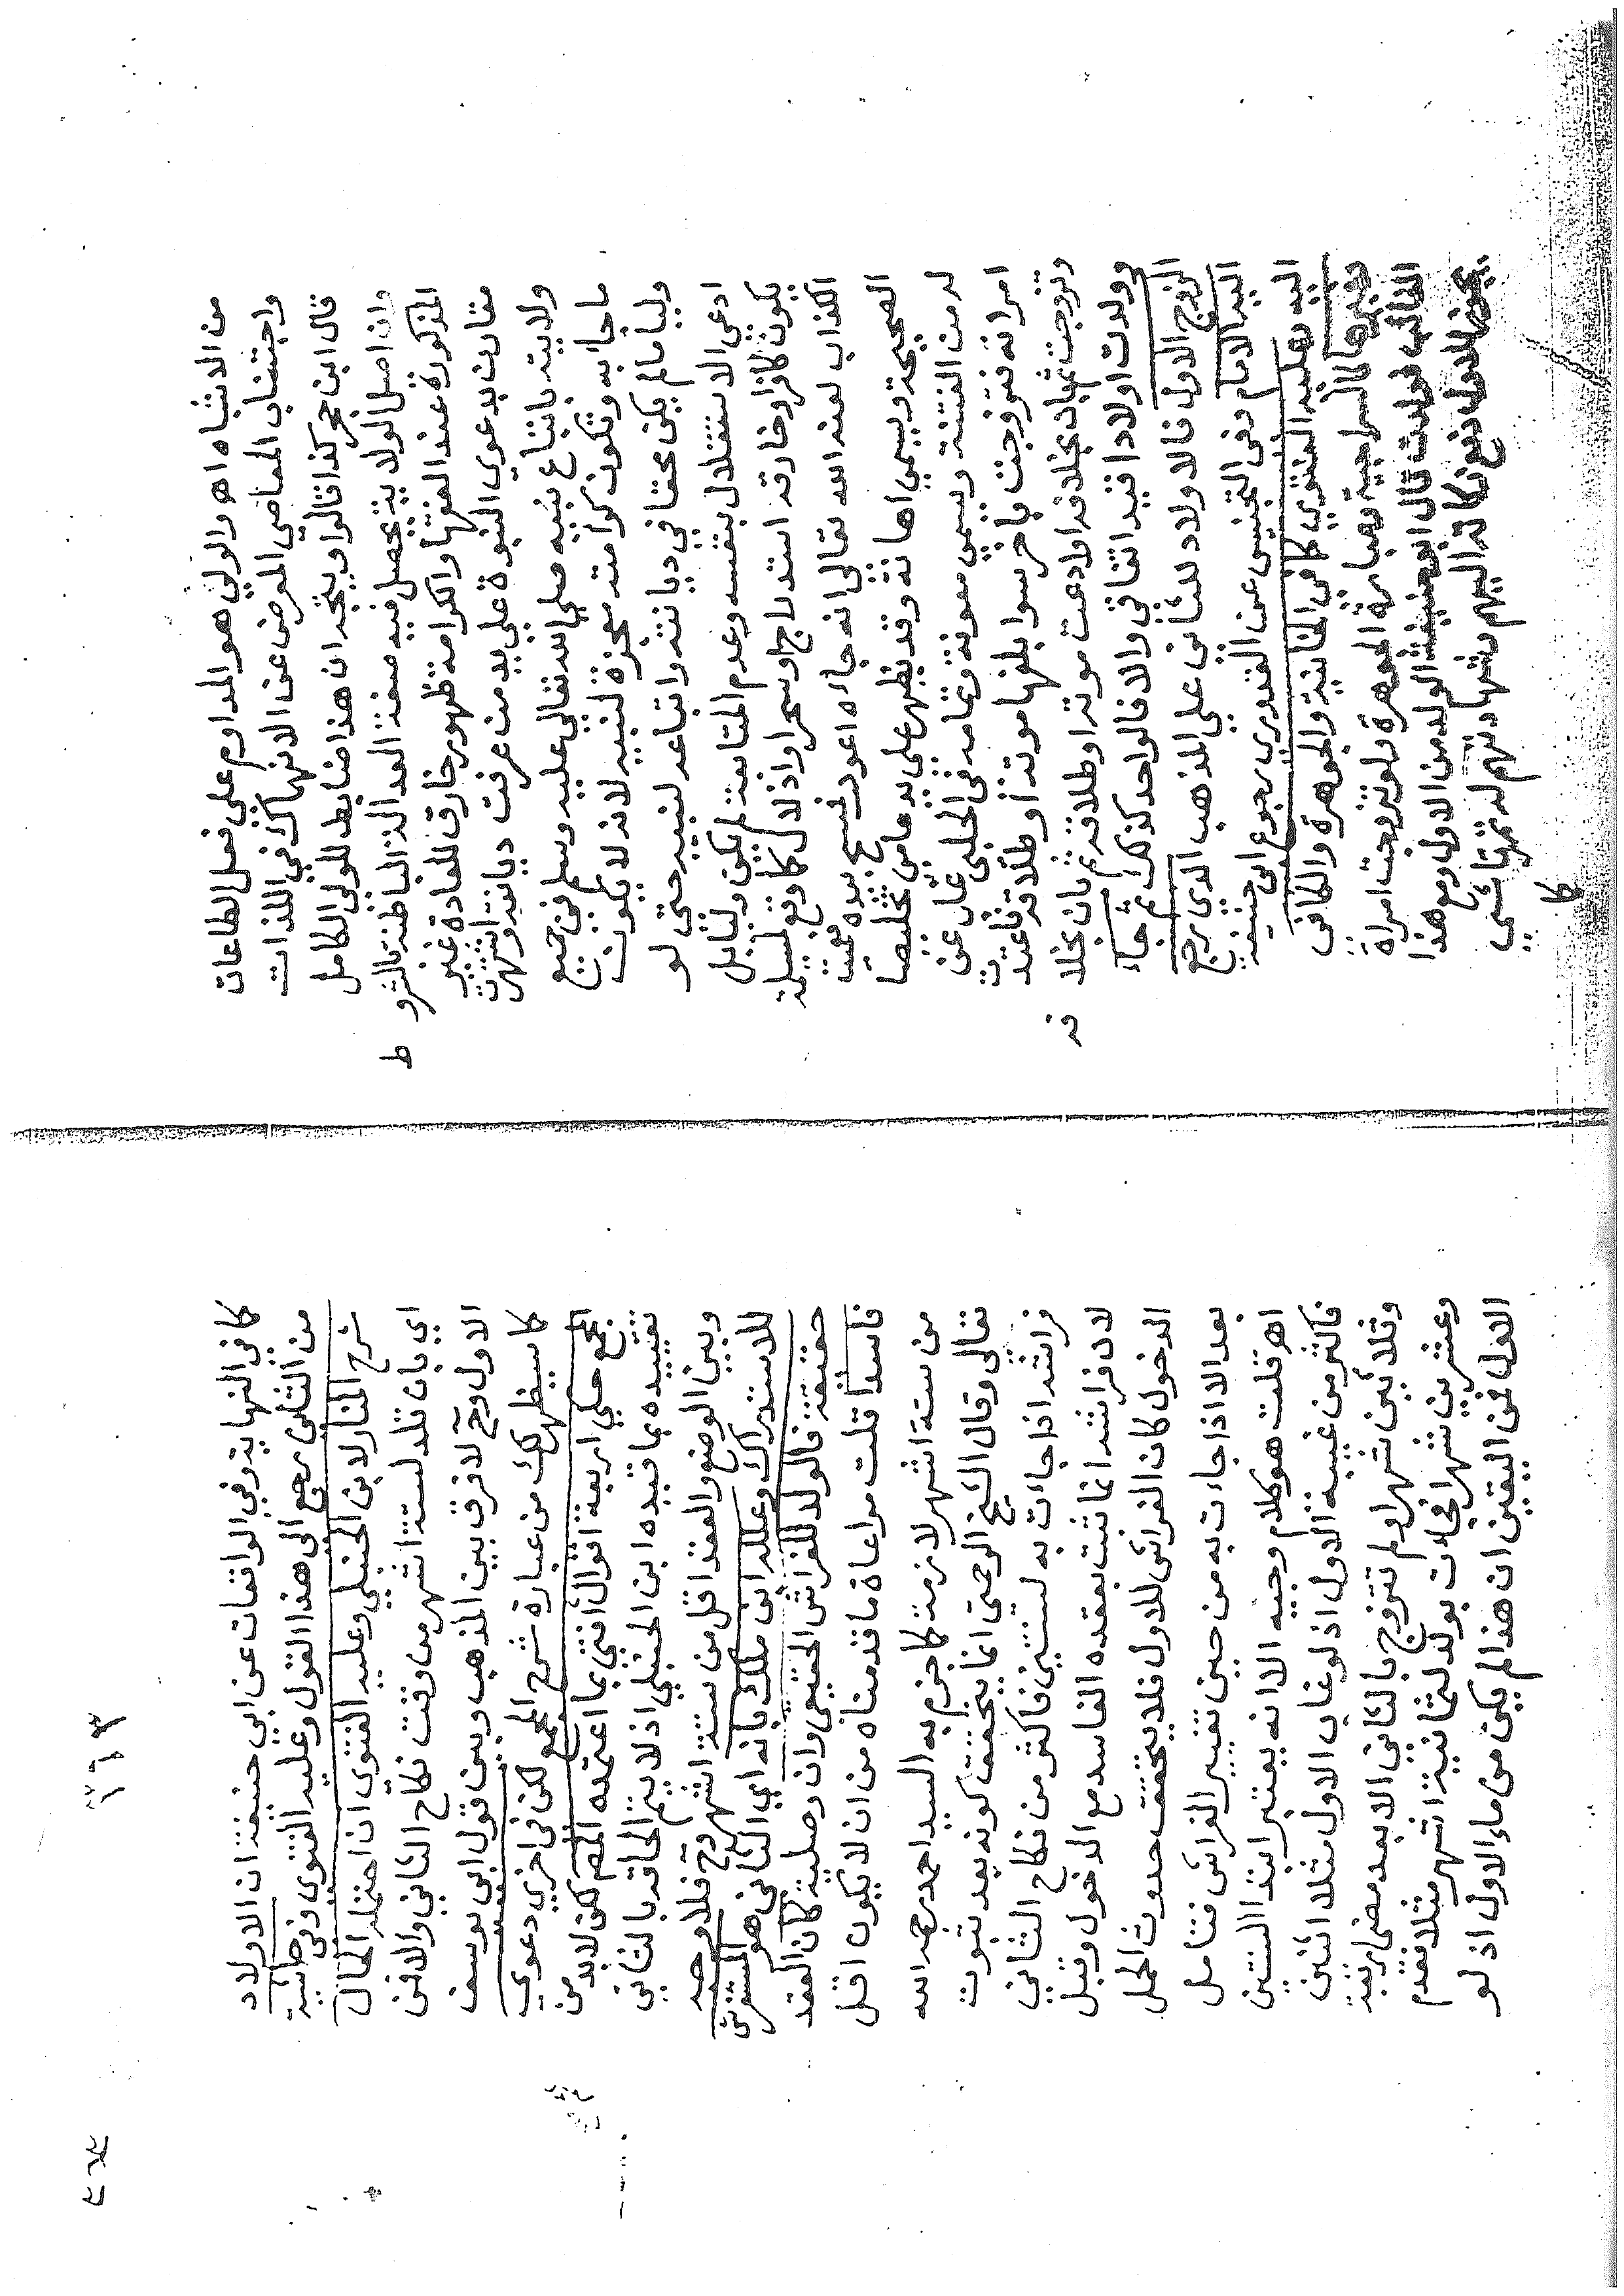 من الاشباه اه والولي هو المداوم علي فعل الطاعات
واجتناب المعاصي المعرض عن الانهماك في اللذات
قال ابن حجر كذا قالوا ويتجه ان هذا ضابط للولي الكامل
وان اصل الولاية يحصل فيه صفة العدالة الباطنة بالشرو
ط
المذكورة عند الفقها والكرامة ظهور خارق للعادة غير
مقارن بدعوي النبوة علي يد من عرفت ديانته واشتهرت
ولايته باتباع نبيه صلي الله تعالي عليه وسلم في جميع
ماجأ به وتكون كرامته معجزة لنبيه لانه لا يكون
وليا مالم يكن محقا في ديانته واتباعه لنبيه حتي لو
ادعي الاستقلال بنفسه وعدم المتابعة لم يكن وليا بل
يكون كافرا وخارقه استدراج او سحرا واذلال كما وقع لمسيلمة
الكذاب لعنه الله تعالي انه جاءه اعور فمسح بيده فعميت
الصحيحة ويسمي اهانة وقد يظهر علي يد عامي تخليصا
له من الفتنة ويسمي معونة وتمامه في الحلبي غاب عن
امراته فتزوجت باخر سوا بلغها موته او طلاقه فاعتدت
وتزوجت ثم بان بخلافه او ادعت موته او طلاقه ثم بان بخلا
فه
وولدت اولادا قيد اتفاقي والا فالواحد كذلك ثم جاء
الزوج الاول فالاولاد للثاني علي المذهب الذي رجع
اليه الامام وفي التجنيس عن القدوري رجوع ابي حنيفة
اليه وعليه الفتوي كما في الخانية والجوهرة والكافي
وغيرها كالسراجية وعبارة الجوهرة ولو تزوجت امراة
الغائب فولدت قال ابو حنيفة الولد من الاول ومع هذا
يجوز للاول دفع زكاته اليهم وشهادتهم له ثم قال شي
كما
٣٦٣
كما في النهاية وفي الواقعات عن ابي حنيفة ان الاولاد
من الثاني رجع الي هذا القول وعليه الفتوي وفي حاشية
شرح المنار لابن الحنبلي وعليه الفتوي ان احتمله الحال
اي بان تلد لستة اشهر من وقت نكاح الثاني والا فمن
الاول وح لا فرق بين المذهب وبين قول ابي يوسف
كما سيظهر لك من عبارة شرح المجمع لكن في اخر دعوي
المجمع حكي اربعة اقوال افتي بما اعتمده المص لكن لابد من
تقييده بما قيده ابن الحنبلي اذ لا يتم الحاقه بالثاني
وبين الوضع والعقد اقل من ستة اشهر وح فلا وجه
للاستدراك وعلله ابن ملك بانه اي الثاني هو المستفرش
حقيقة فالولد للفراش الحقيقي وان وصلية كان العقد
فاسدا قلت مراعاة ما قدمناه من ان لا يكون اقل
من ستة اشهر لازمة كما جزم به السيد احمد رحمه الله
تعالي وقال الشيخ الرحمتي انما يتحقق كونه بعد ثبوت
فراشه اذا جاءت به لسنتين فاكثر من نكاح الثاني
لان فراشه انما ثبت بعقده الفاسد مع الدخول وقبل
الدخول كان الفراش للاول فلا يتحقق حدوث الحمل
بعد الا اذا جاءت به من حين تغيير الفراش فتامل
اه قلت هو كلام وجيه الا انه يعتبر ابتدا السنتين
فاكثر من غيبة الاول اذ لو غاب الاول مثلا اثنين
وثلاثين شهرا ولم تتزوج بالثاني الا بعد مضي اربعة
وعشرين شهرا فجات بولد لثمانية اشهر مثلا فقدم
الاول فمن اليقين ان هذا لم يكن من ماء الاول اذ لو